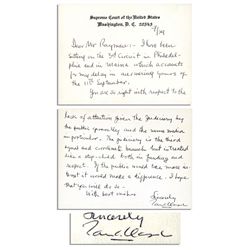 Supreme Court of the United States
Washington, D. C. 20543
Dear Mr Raymer:- I have been
sitting on the 3rd Circuit in Philadel-
phia and in Maine which accounts
for my delay in answering yours of
the 11th September.
You are so right with respect to the
lack of attention given the judiciary by
the public generally and the news media
in particular. The judiciary is the third
equal and coordinate branch but is treated
like a step-child both in funding and
respect. If the public would use more in-
terest it would make a difference. I hope
that you will do so.
With best wishes
Sincerely
Tom C Clark
Sincerely
Tom C Clark